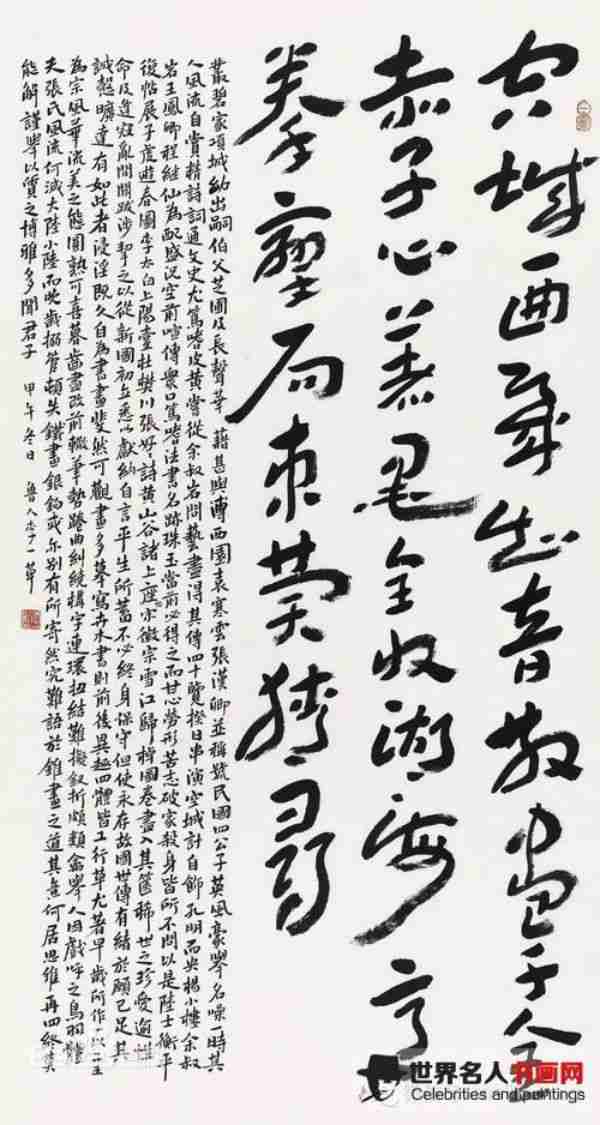 空城知音散盡千金
赤子心墨全收湖海
拳拳而尋
叢碧家項城幼出嗣伯父芝圃及長聲華藉甚與溥西園袁寒雲張漢卿並稱號民國四公子英風豪舉名噪一時其
人風流自賞精詩詞通文史尤篤嗜皮黄嘗從余叔岩問藝盡得其傳四十覽揆日串演空城計自飾孔明而央楊小樓余叔
岩王鳳卿程継仙為配盛況空前喧傳衆口篤嗜法書名跡珠玉當前必得之而甘心勞形苦志破家殺身皆所不問以是陸士衡平
復帖展子虔遊春圖李太白上陽臺杜樊川張好好詩黄山谷諸上座宋徽宗雪江歸棹圖卷盡入其篋稀世之珍愛逾性
命及遭寇亂間關跋涉挈之以從新國初立悉以獻納自言平生所蓄不必終身保守但使永存故國世傳有緒於願已足其
誠懿曠達有如此者浸淫既久自為書畫斐然可觀畫多摹寫卉木書則前後異趣四體皆工行草尤著早歲所作以王
為宗風華流美之態圓熟可喜暮齒盡改前轍筆勢蹙曲糾繞構字連環扭結難擬釵折頗類人因戲呼之鳥羽體
夫張氏風流何減大陸小陸而晚歲搦管頓失鐵畫銀鉤或亦别有所寄然究難語於錐畫之道其意何居思維再四終莫
能解謹舉以質之博雅多聞君子 甲午冬日 魯人
世界名人书画网
Celebrities and paintings